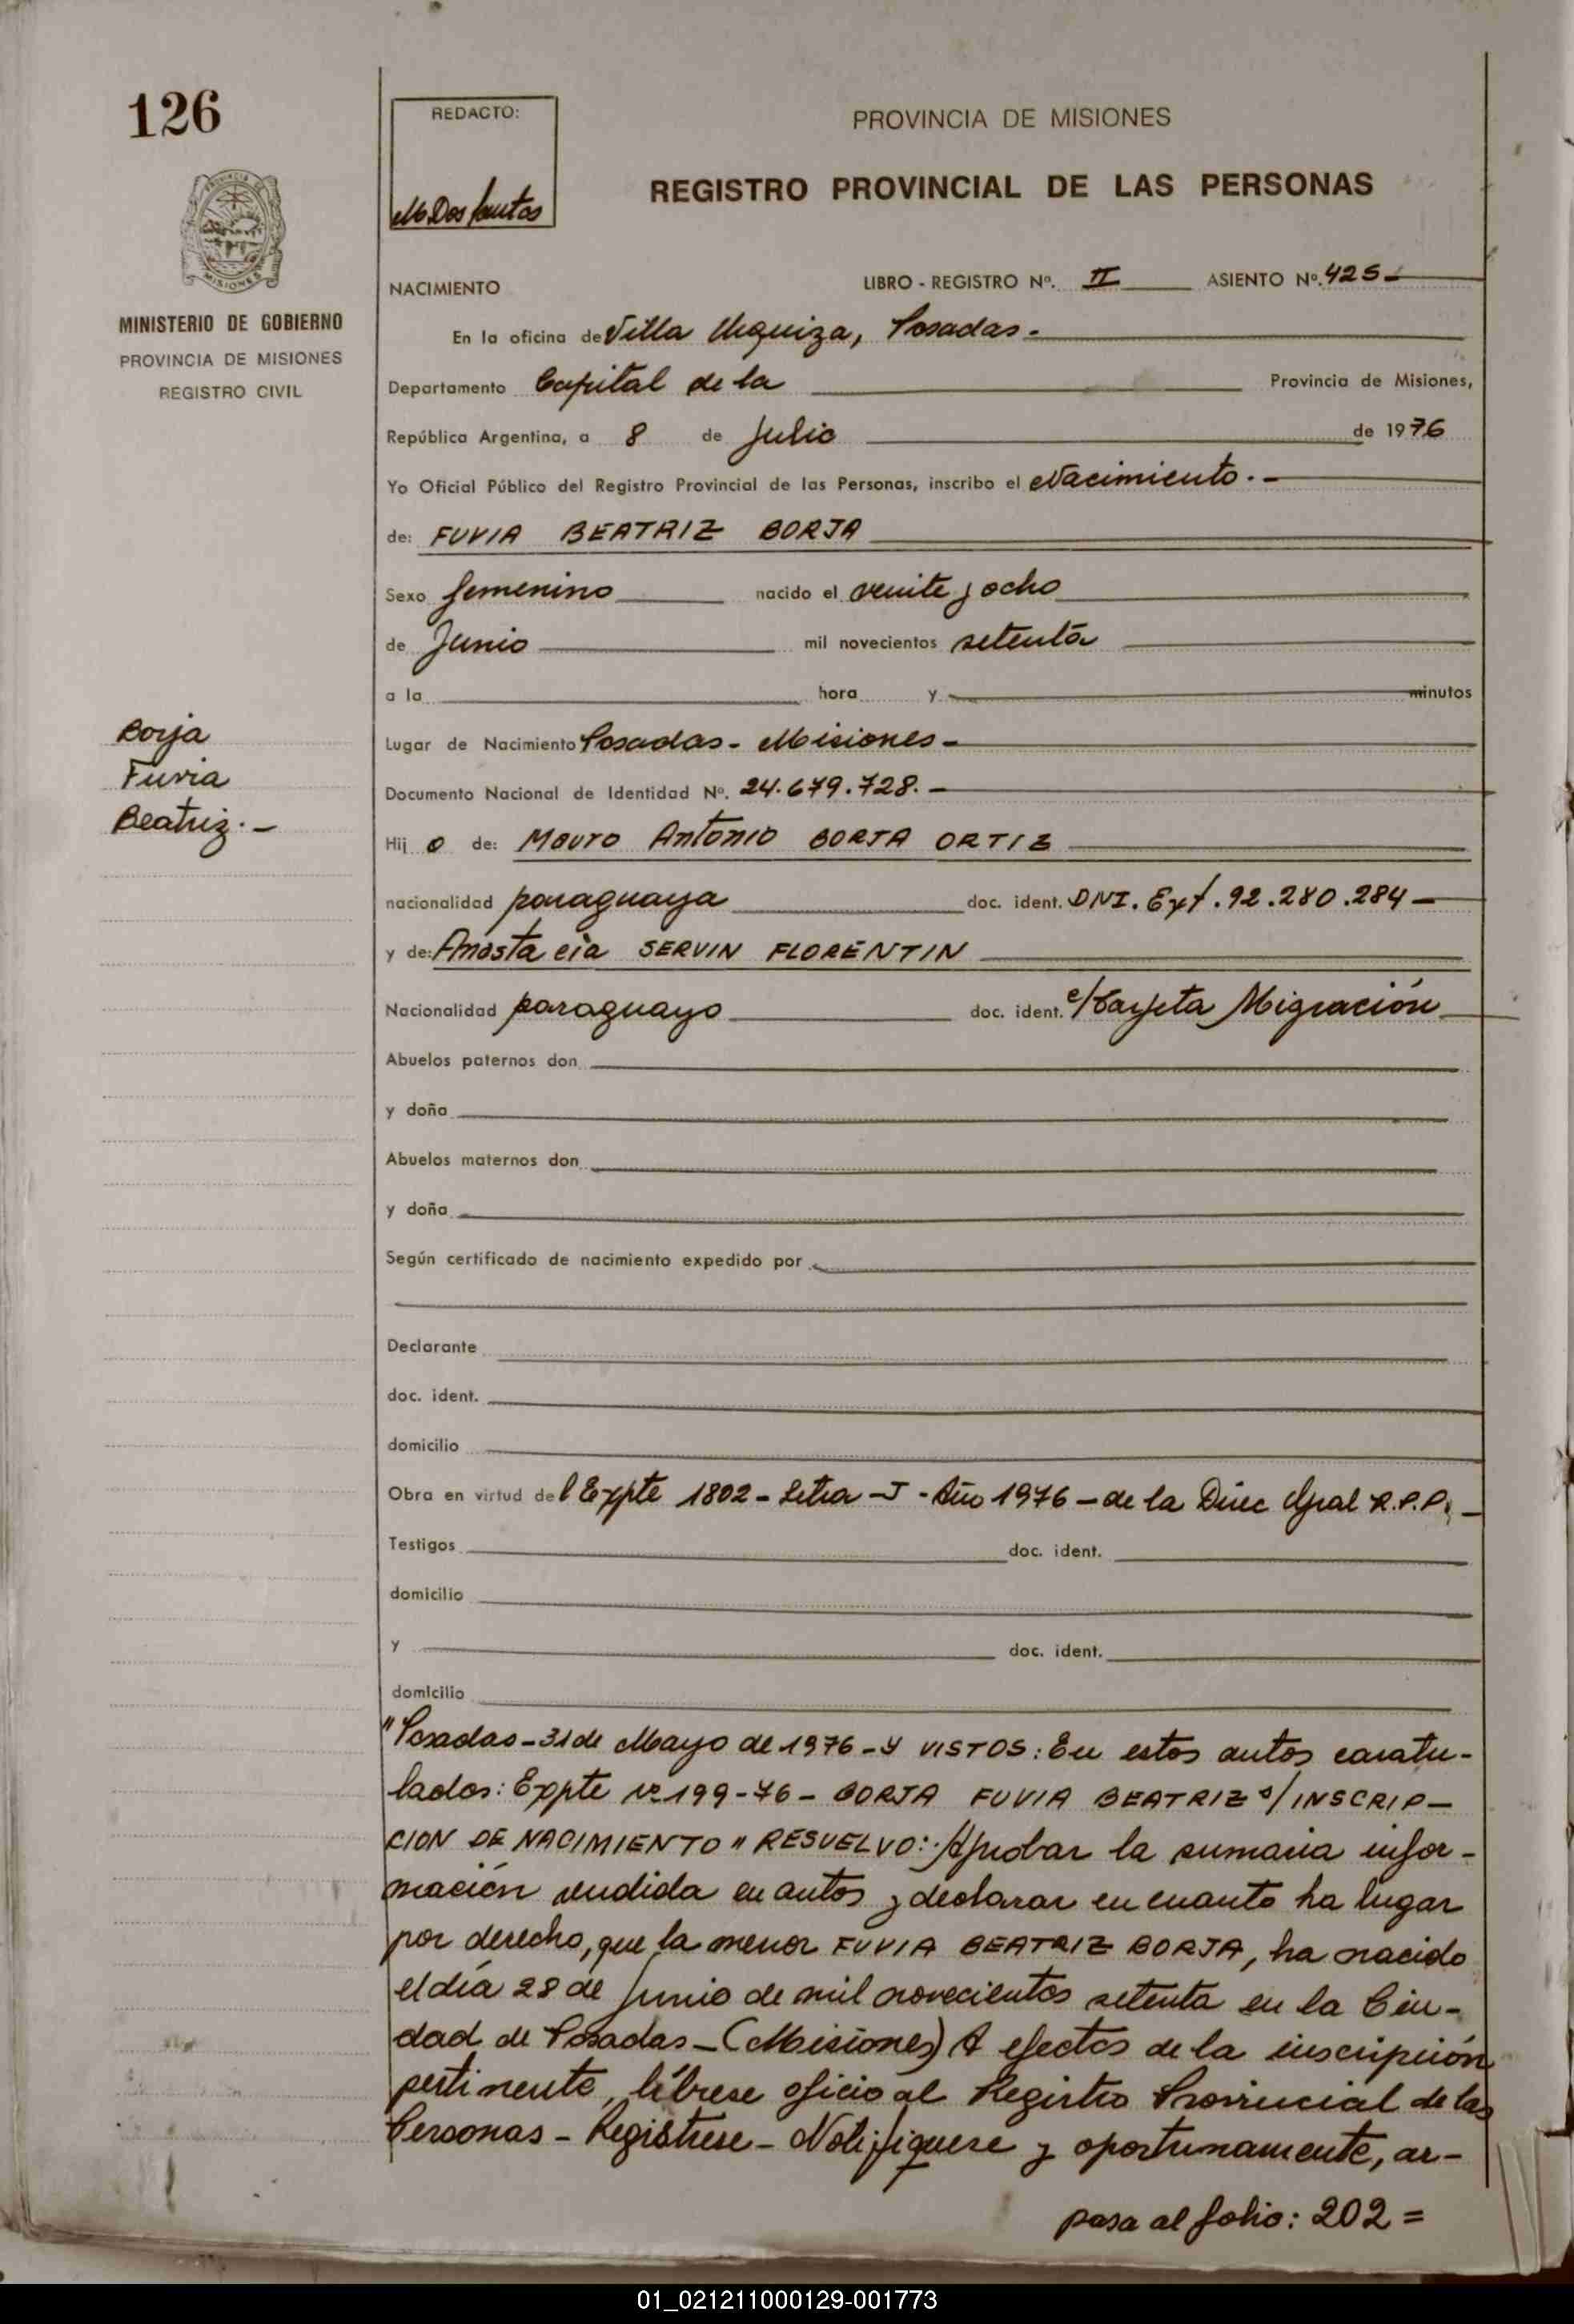 126
REDACTO:
M Dos Santos
PROVINCIA DE MISIONES
REGISTRO PROVINCIAL DE LAS PERSONAS
PROVINCIA DE
MISIONES
MINISTERIO DE GOBIERNO
PROVINCIA DE MISIONES
REGISTRO CIVIL
NACIMIENTO LIBRO - REGISTRO Nº. II ASIENTO Nº. 425 -
En la oficina de Villa Urquiza, Posadas.-
Departamento Capital de la Provincia de Misiones,
República Argentina, a 8 de Julio de 1976
Yo Oficial Público del Registro Provincial de las Personas, inscribo el Nacimiento.-
de: FUVIA BEATRIZ BORJA
Sexo femenino nacido el veinte y ocho
de Junio mil novecientos setenta
a la hora y minutos
Borja
Fuvia
Beatriz.-
Lugar de Nacimiento Posadas - Misiones -
Documento Nacional de Identidad Nº. 24.679.728.-
Hij o de: Mauro Antonio BORJA ORTIZ
nacionalidad paraguaya doc. ident. DNI. Ext. 92.280.284 -
y de: Anastacia SERVIN FLORENTIN
Nacionalidad paraguayo doc. ident. c/Tarjeta Migración
Abuelos paternos don
y doña
Abuelos maternos don
y doña
Según certificado de nacimiento expedido por
Declarante
doc. ident.
domicilio
Obra en virtud del Expte 1802 - Letra - J - Año 1976 - de la Direc Gral R.P.P. -
Testigos doc. ident.
domicilio
y doc. ident.
domicilio
"Posadas - 31 de Mayo de 1976 - Y VISTOS: En estos autos caratu-
lados: Expte Nº 199-76 - BORJA FUVIA BEATRIZ s/ INSCRIP-
CION DE NACIMIENTO" RESUELVO: Aprobar la sumaria infor-
mación rendida en autos y declarar en cuanto ha lugar
por derecho, que la menor FUVIA BEATRIZ BORJA, ha nacido
el día 28 de Junio de mil novecientos setenta en la Ciu-
dad de Posadas - (Misiones) A efectos de la inscripción
pertinente, líbrese oficio al Registro Provincial de las
Personas - Regístrese - Notifíquese y oportunamente, ar-
pasa al folio: 202 =
01_021211000129-001773